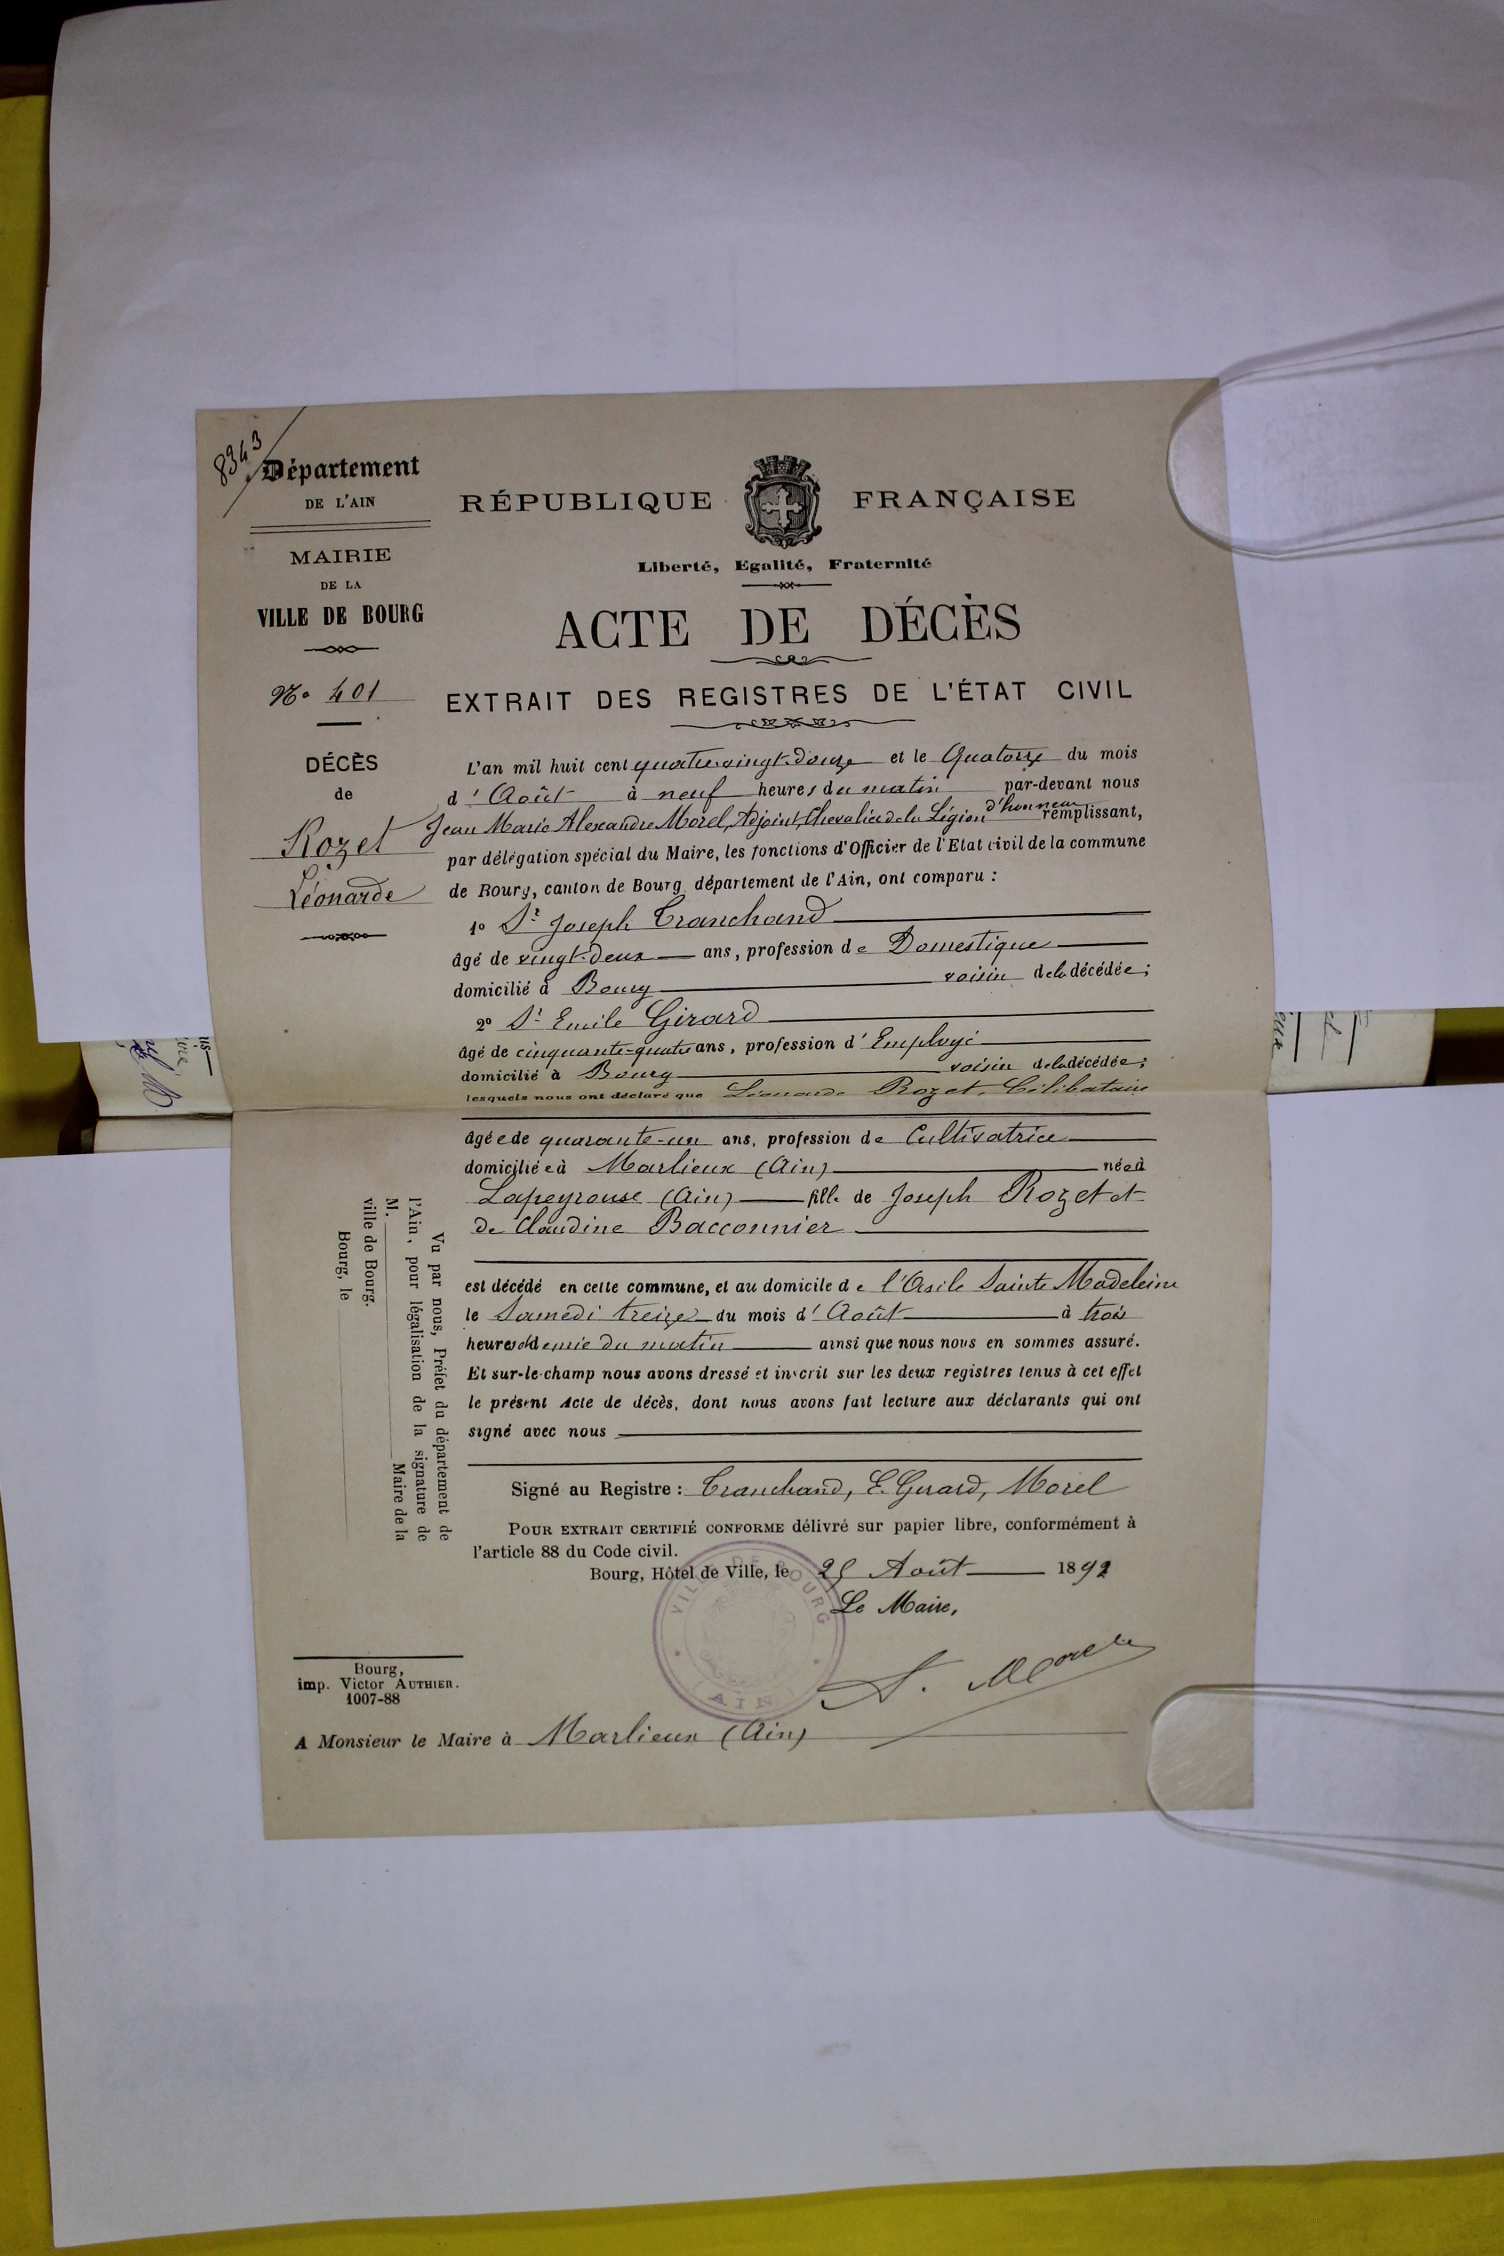 8343
Département
DE L'AIN
MAIRIE
DE LA
VILLE DE BOURG
No 401
DÉCÈS
de
Rozet
Léonarde
RÉPUBLIQUE FRANÇAISE
Liberté, Egalité, Fraternité
ACTE DE DÉCÈS
EXTRAIT DES REGISTRES DE L'ÉTAT CIVIL
L'an mil huit cent quatre-vingt-douze et le Quatorze du mois
d'Août à neuf heures du matin par-devant nous
Jean Marie Alexandre Morel, Adjoint, Chevalier de la Légion d'honneur remplissant,
par délégation spécial du Maire, les fonctions d'Officier de l'Etat civil de la commune
de Bourg, canton de Bourg, département de l'Ain, ont comparu :
1o Sr Joseph Tranchand
âgé de vingt-deux ans, profession de Domestique
domicilié à Bourg voisin de la décédée;
2o Sr Emile Girard
âgé de cinquante-quatre ans, profession d'Employé
domicilié à Bourg voisin de la décédée;
lesquels nous ont déclaré que Léonarde Rozet, Célibataire
âgée de quarante-un ans, profession de Cultivatrice
domiciliée à Marlieux (Ain) née à
Lapeyrouse (Ain) fille de Joseph Rozet et
de Claudine Bacconnier
est décédé en cette commune, et au domicile de l'Asile Sainte Madeleine
le Samedi treize du mois d'Août à trois
heures et demie du matin ainsi que nous nous en sommes assuré.
Et sur-le-champ nous avons dressé et inscrit sur les deux registres tenus à cet effet
le présent Acte de décès, dont nous avons fait lecture aux déclarants qui ont
signé avec nous
Signé au Registre : Tranchand, E. Girard, Morel
POUR EXTRAIT CERTIFIÉ CONFORME délivré sur papier libre, conformément à
l'article 88 du Code civil.
Bourg, Hôtel de Ville, le 25 Août 1892
Le Maire,
A. Morel
VILLE DE BOURG
AIN
Vu par nous, Préfet du département de
l'Ain, pour légalisation de la signature de
M. Maire de la
ville de Bourg.
Bourg, le
Bourg,
imp. Victor AUTHIER.
1007-88
A Monsieur le Maire à Marlieux (Ain)